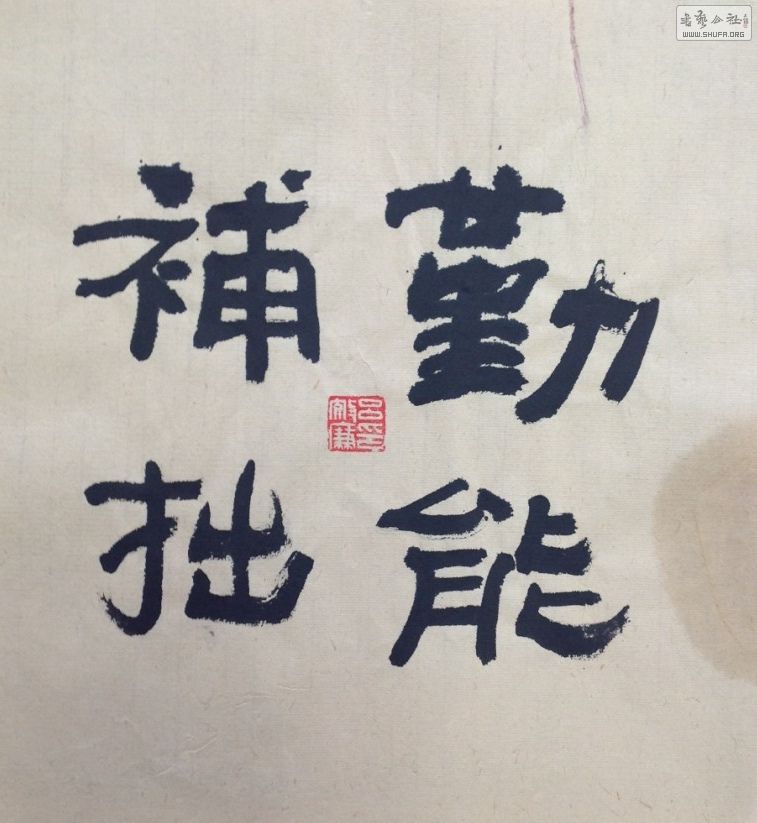 勤能
補拙
書藝公社
WWW.SHUFA.ORG